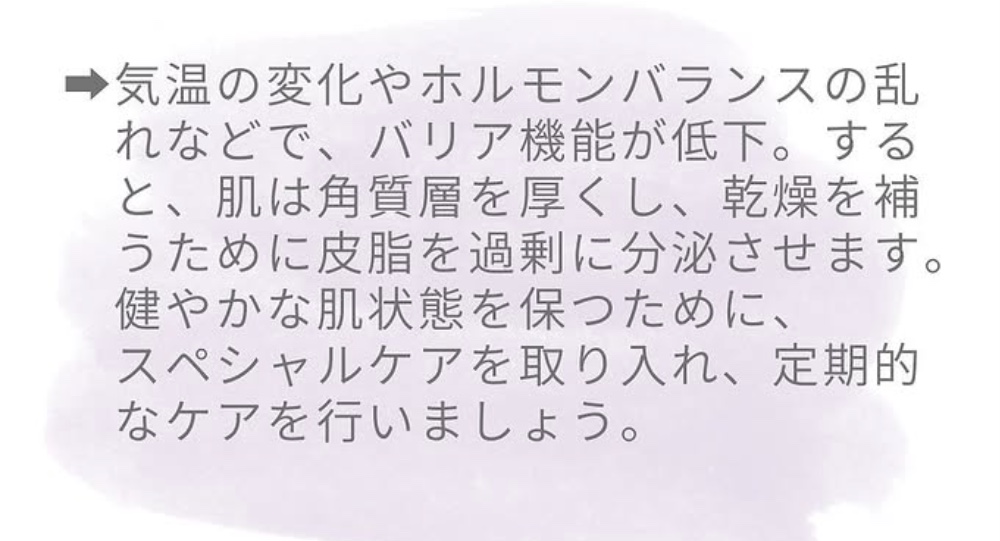 ➡気温の変化やホルモンバランスの乱
れなどで、バリア機能が低下。する
と、肌は角質層を厚くし、乾燥を補
うために皮脂を過剰に分泌させます。
健やかな肌状態を保つために、
スペシャルケアを取り入れ、定期的
なケアを行いましょう。